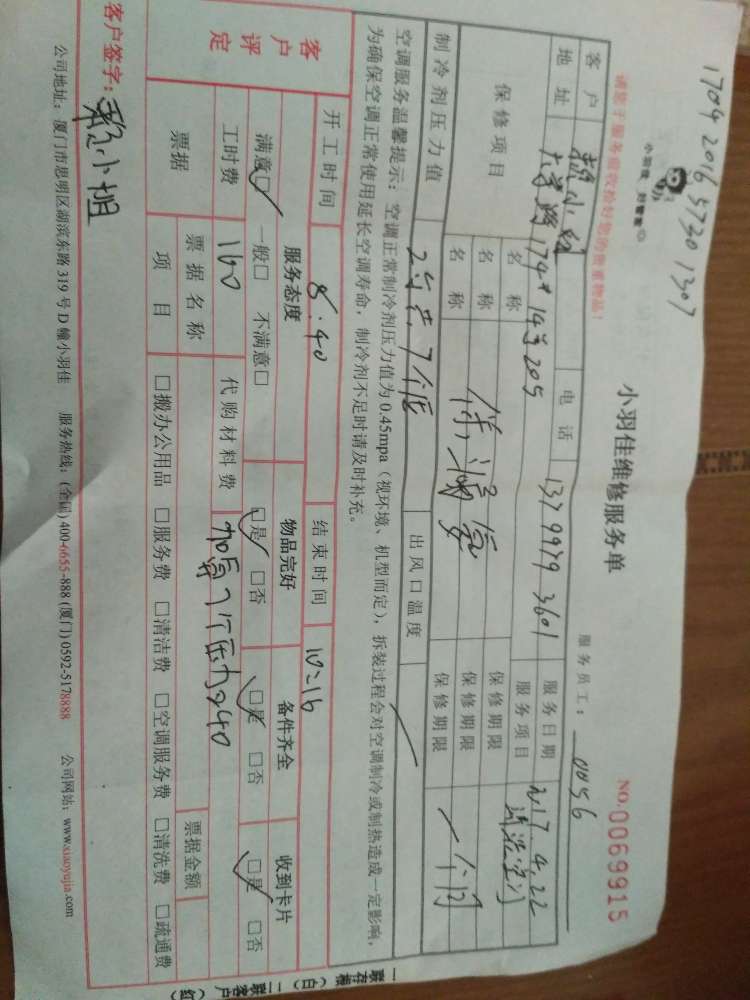 1704 2016 5730 1307
小羽佳 好管家
请您于服务前收捡好您的贵重物品！
小羽佳维修服务单
NO.0069915
服务员工：0056
客户 小姐 电话 13799793601 服务日期 2017.4.22
地址 大学路174# 14号205 服务项目
保修项目 名称 保修期限
名称 保修期限 一个月
名称 保修期限
制冷剂压力值 出风口温度
空调服务温馨提示：空调正常制冷剂压力值为0.45mpa（视环境、机型而定），拆装过程会对空调制冷或制热造成一定影响，
为确保空调正常使用延长空调寿命，制冷剂不足时请及时补充。
开工时间 8:40 结束时间 10:16
客户评定 服务态度 物品完好 备件齐全 收到卡片
满意☑ 一般□ 不满意□ ☑是 □否 ☑是 □否 ☑是 □否
工时费 160 代购材料费 240
票据 票据名称 票据金额
项目 □搬办公用品 □服务费 □清洁费 □空调服务费 □清洗费 □疏通费
客户签字： 小姐
公司地址：厦门市思明区湖滨东路319号D幢小羽佳 服务热线：(全国)400-6655-888 (厦门)0592-5178888 公司网站：www.xiaoyujia.com
一联存根（白）二联客户（红）